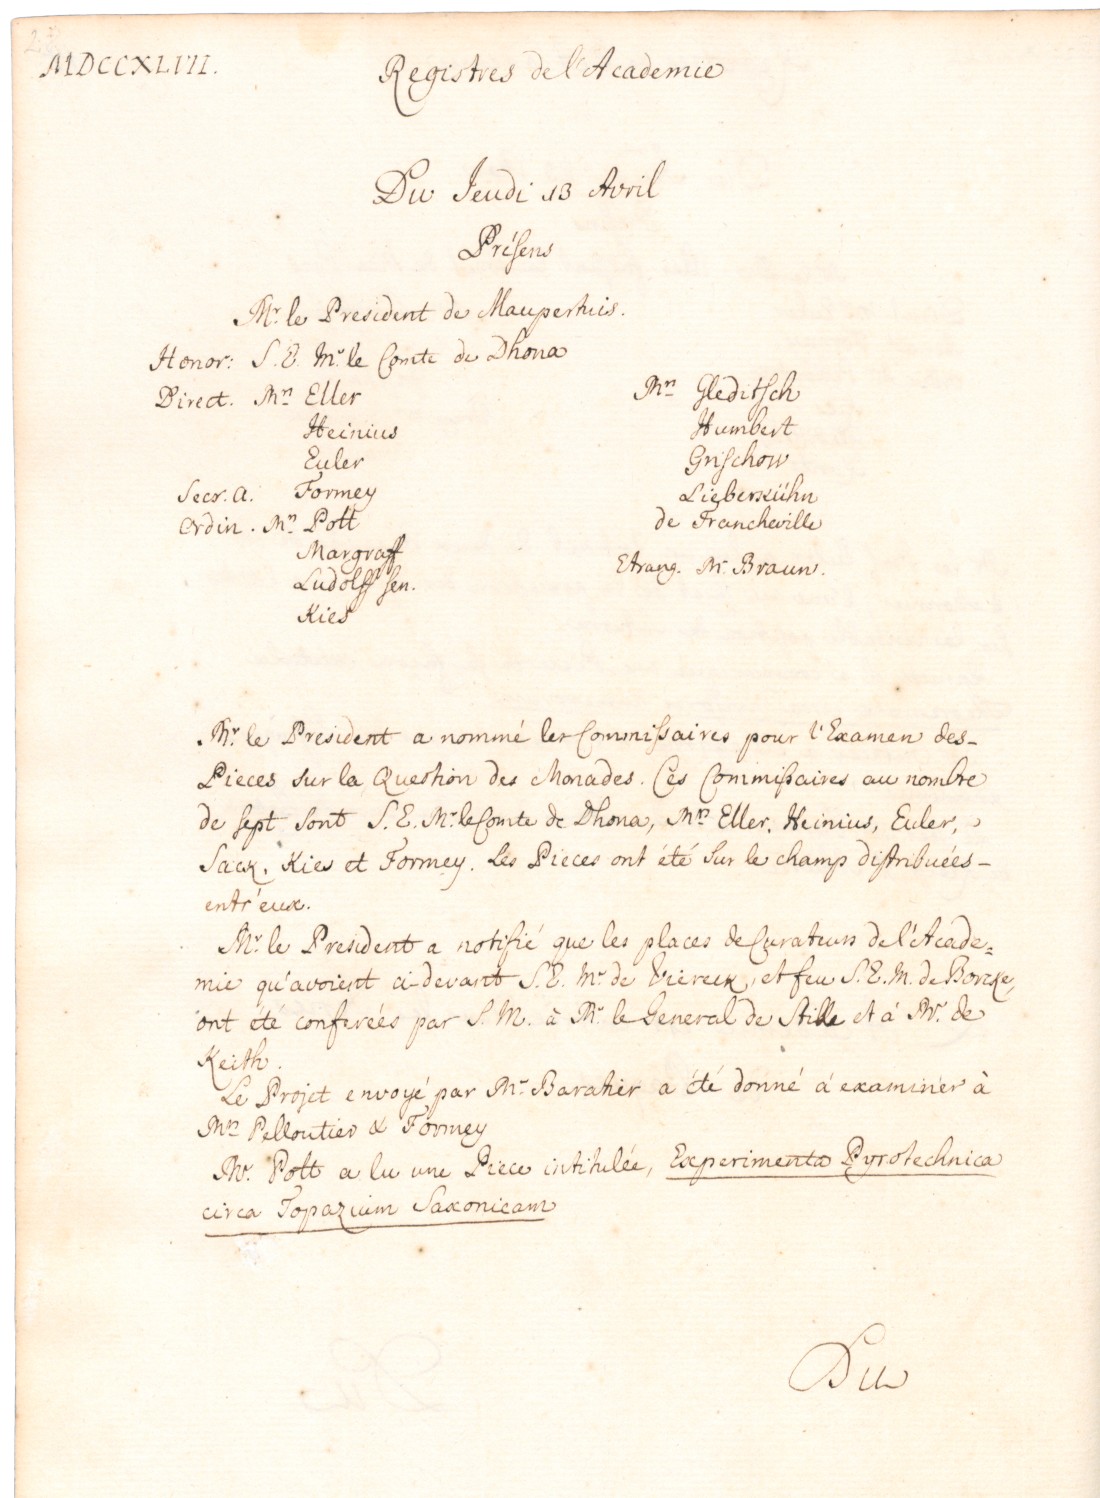 MDCCXLVII.
Registres de l'Academie
Du Jeudi 13 Avril
Présens
Mr. le President de Maupertuis.
Honor: S. E. Mr. le Comte de Dhona
Direct. Mrs Eller
Heinius
Euler
Secr. A. Formey
Ordin. Mrs Pott
Margraff
Ludolff sen.
Kies
Mrs Gleditsch
Humbert
Grischow
Lieberkühn
de Francheville
Etrang. Mr. Braun.
Mr. le President a nommé les Commissaires pour l'Examen des
Pieces sur la Question des Monades. Ces Commissaires au nombre
de sept sont S. E. Mr. le Comte de Dhona, Mrs Eller, Heinius, Euler,
Sack, Kies et Formey. Les Pieces ont été sur le champ distribuées
entr'eux.
Mr. le President a notifié que les places de Curateurs de l'Acade-
mie qu'avoient ci-devant S. E. Mr. de Viereck, et feu S. E. M. de Borcke,
ont été conferées par S. M. à Mr. le General de Stille et á Mr. de
Keith.
Le Projet envoyé par Mr. Baratier a été donné á examiner à
Mrs Pelloutier & Formey
Mr. Pott a lu une Piece intitulée, Experimenta Pyrotechnica
circa Topazium Saxonicam
Du